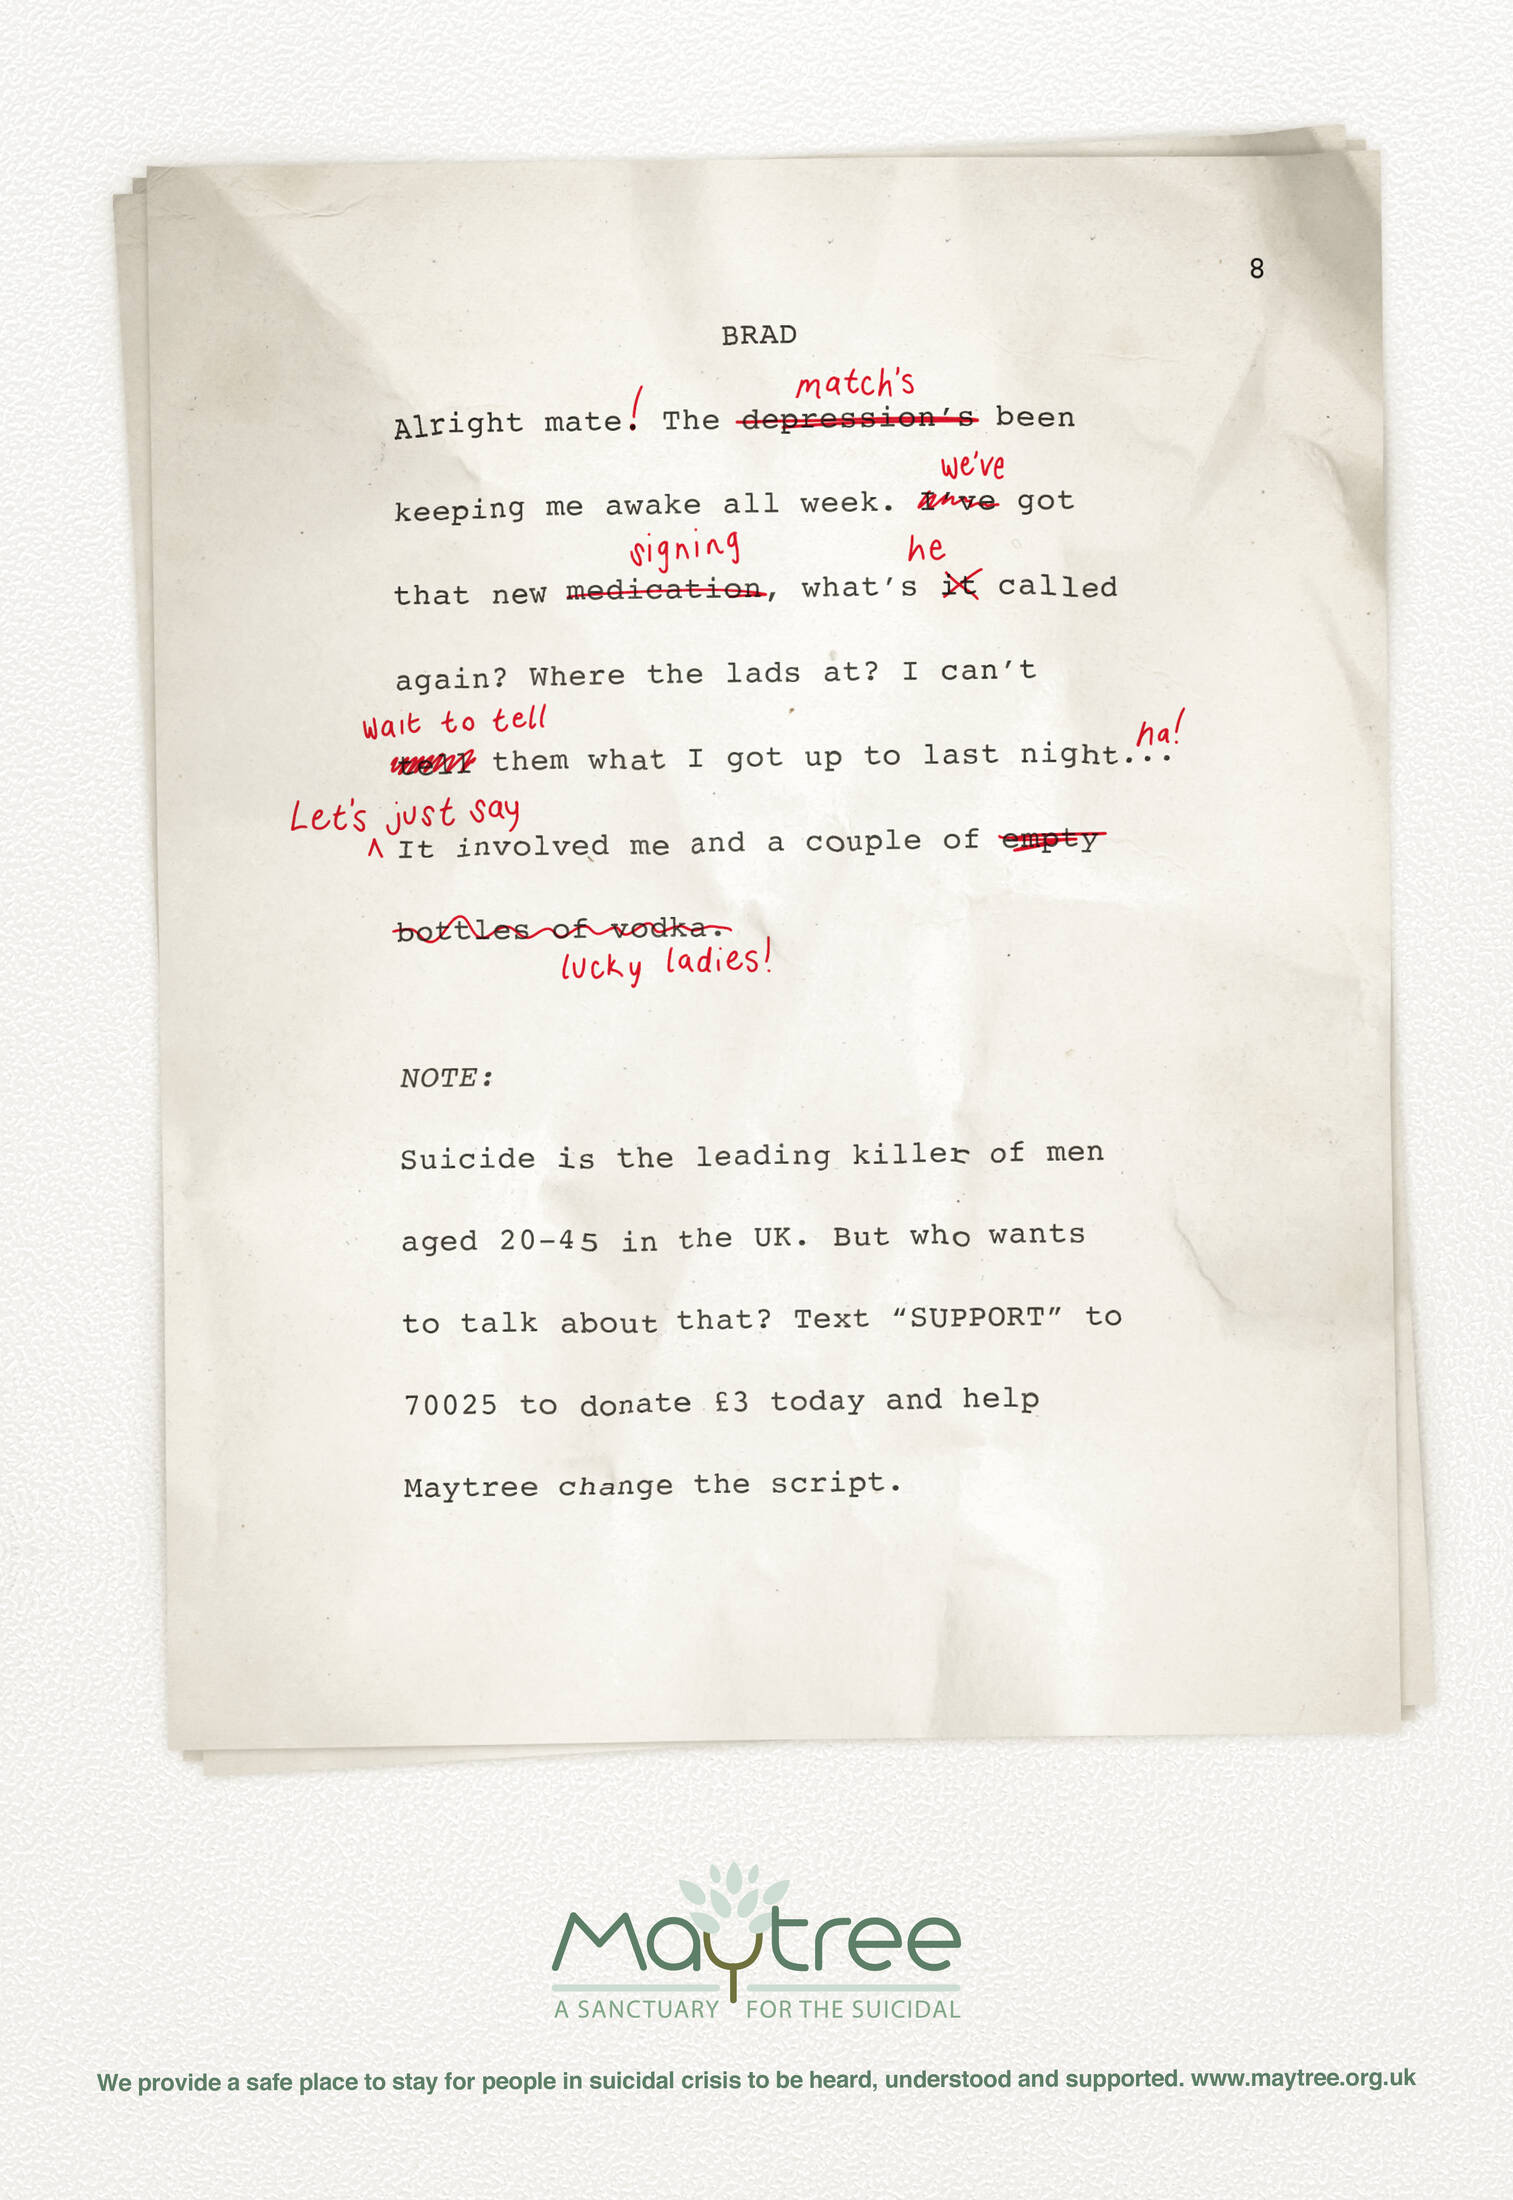 8
BRAD
match's
Alright mate! The depression's been
we've
keeping me awake all week. I've got
signing he
that new medication, what's it called
again? Where the lads at? I can't
wait to tell
tell them what I got up to last night... ha!
Let's just say
^ It involved me and a couple of empty
bottles of vodka.
lucky ladies!
NOTE:
Suicide is the leading killer of men
aged 20-45 in the UK. But who wants
to talk about that? Text “SUPPORT” to
70025 to donate £3 today and help
Maytree change the script.
Maytree
A SANCTUARY FOR THE SUICIDAL
We provide a safe place to stay for people in suicidal crisis to be heard, understood and supported. www.maytree.org.uk